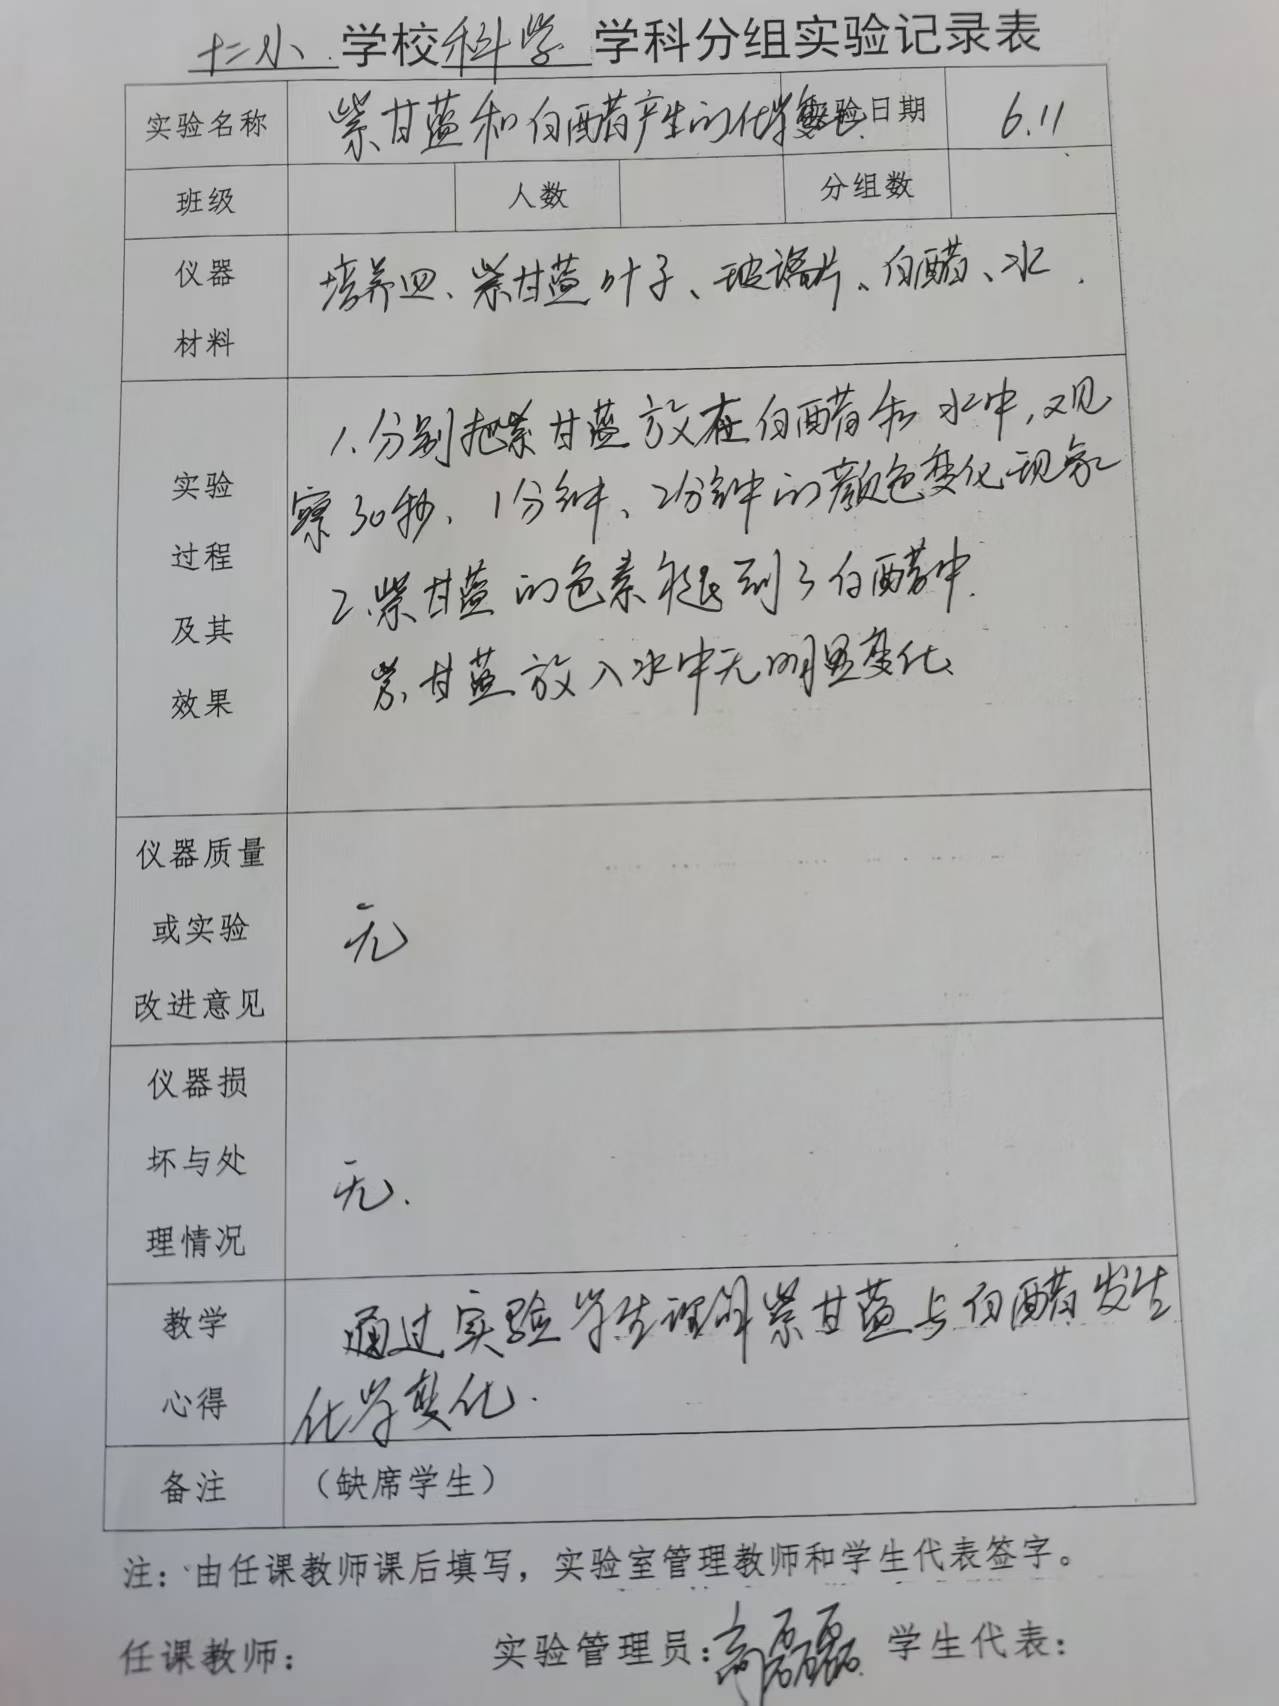 十二小 学校 科学 学科分组实验记录表
实验名称 紫甘蓝和白醋产生的化学 实验日期 6.11
班级 人数 分组数
仪器
材料
培养皿、紫甘蓝叶子、玻璃片、白醋、水.
实验
过程
及其
效果
1.分别把紫甘蓝放在白醋和水中,观
察30秒、1分钟、2分钟的颜色变化现象
2.紫甘蓝的色素褪到了白醋中.
紫甘蓝放入水中无明显变化
仪器质量
或实验
改进意见
无
仪器损
坏与处
理情况
无.
教学
心得
通过实验学生理解紫甘蓝与白醋发生
化学变化.
备注 （缺席学生）
注：由任课教师课后填写，实验室管理教师和学生代表签字。
任课教师： 实验管理员： 学生代表：